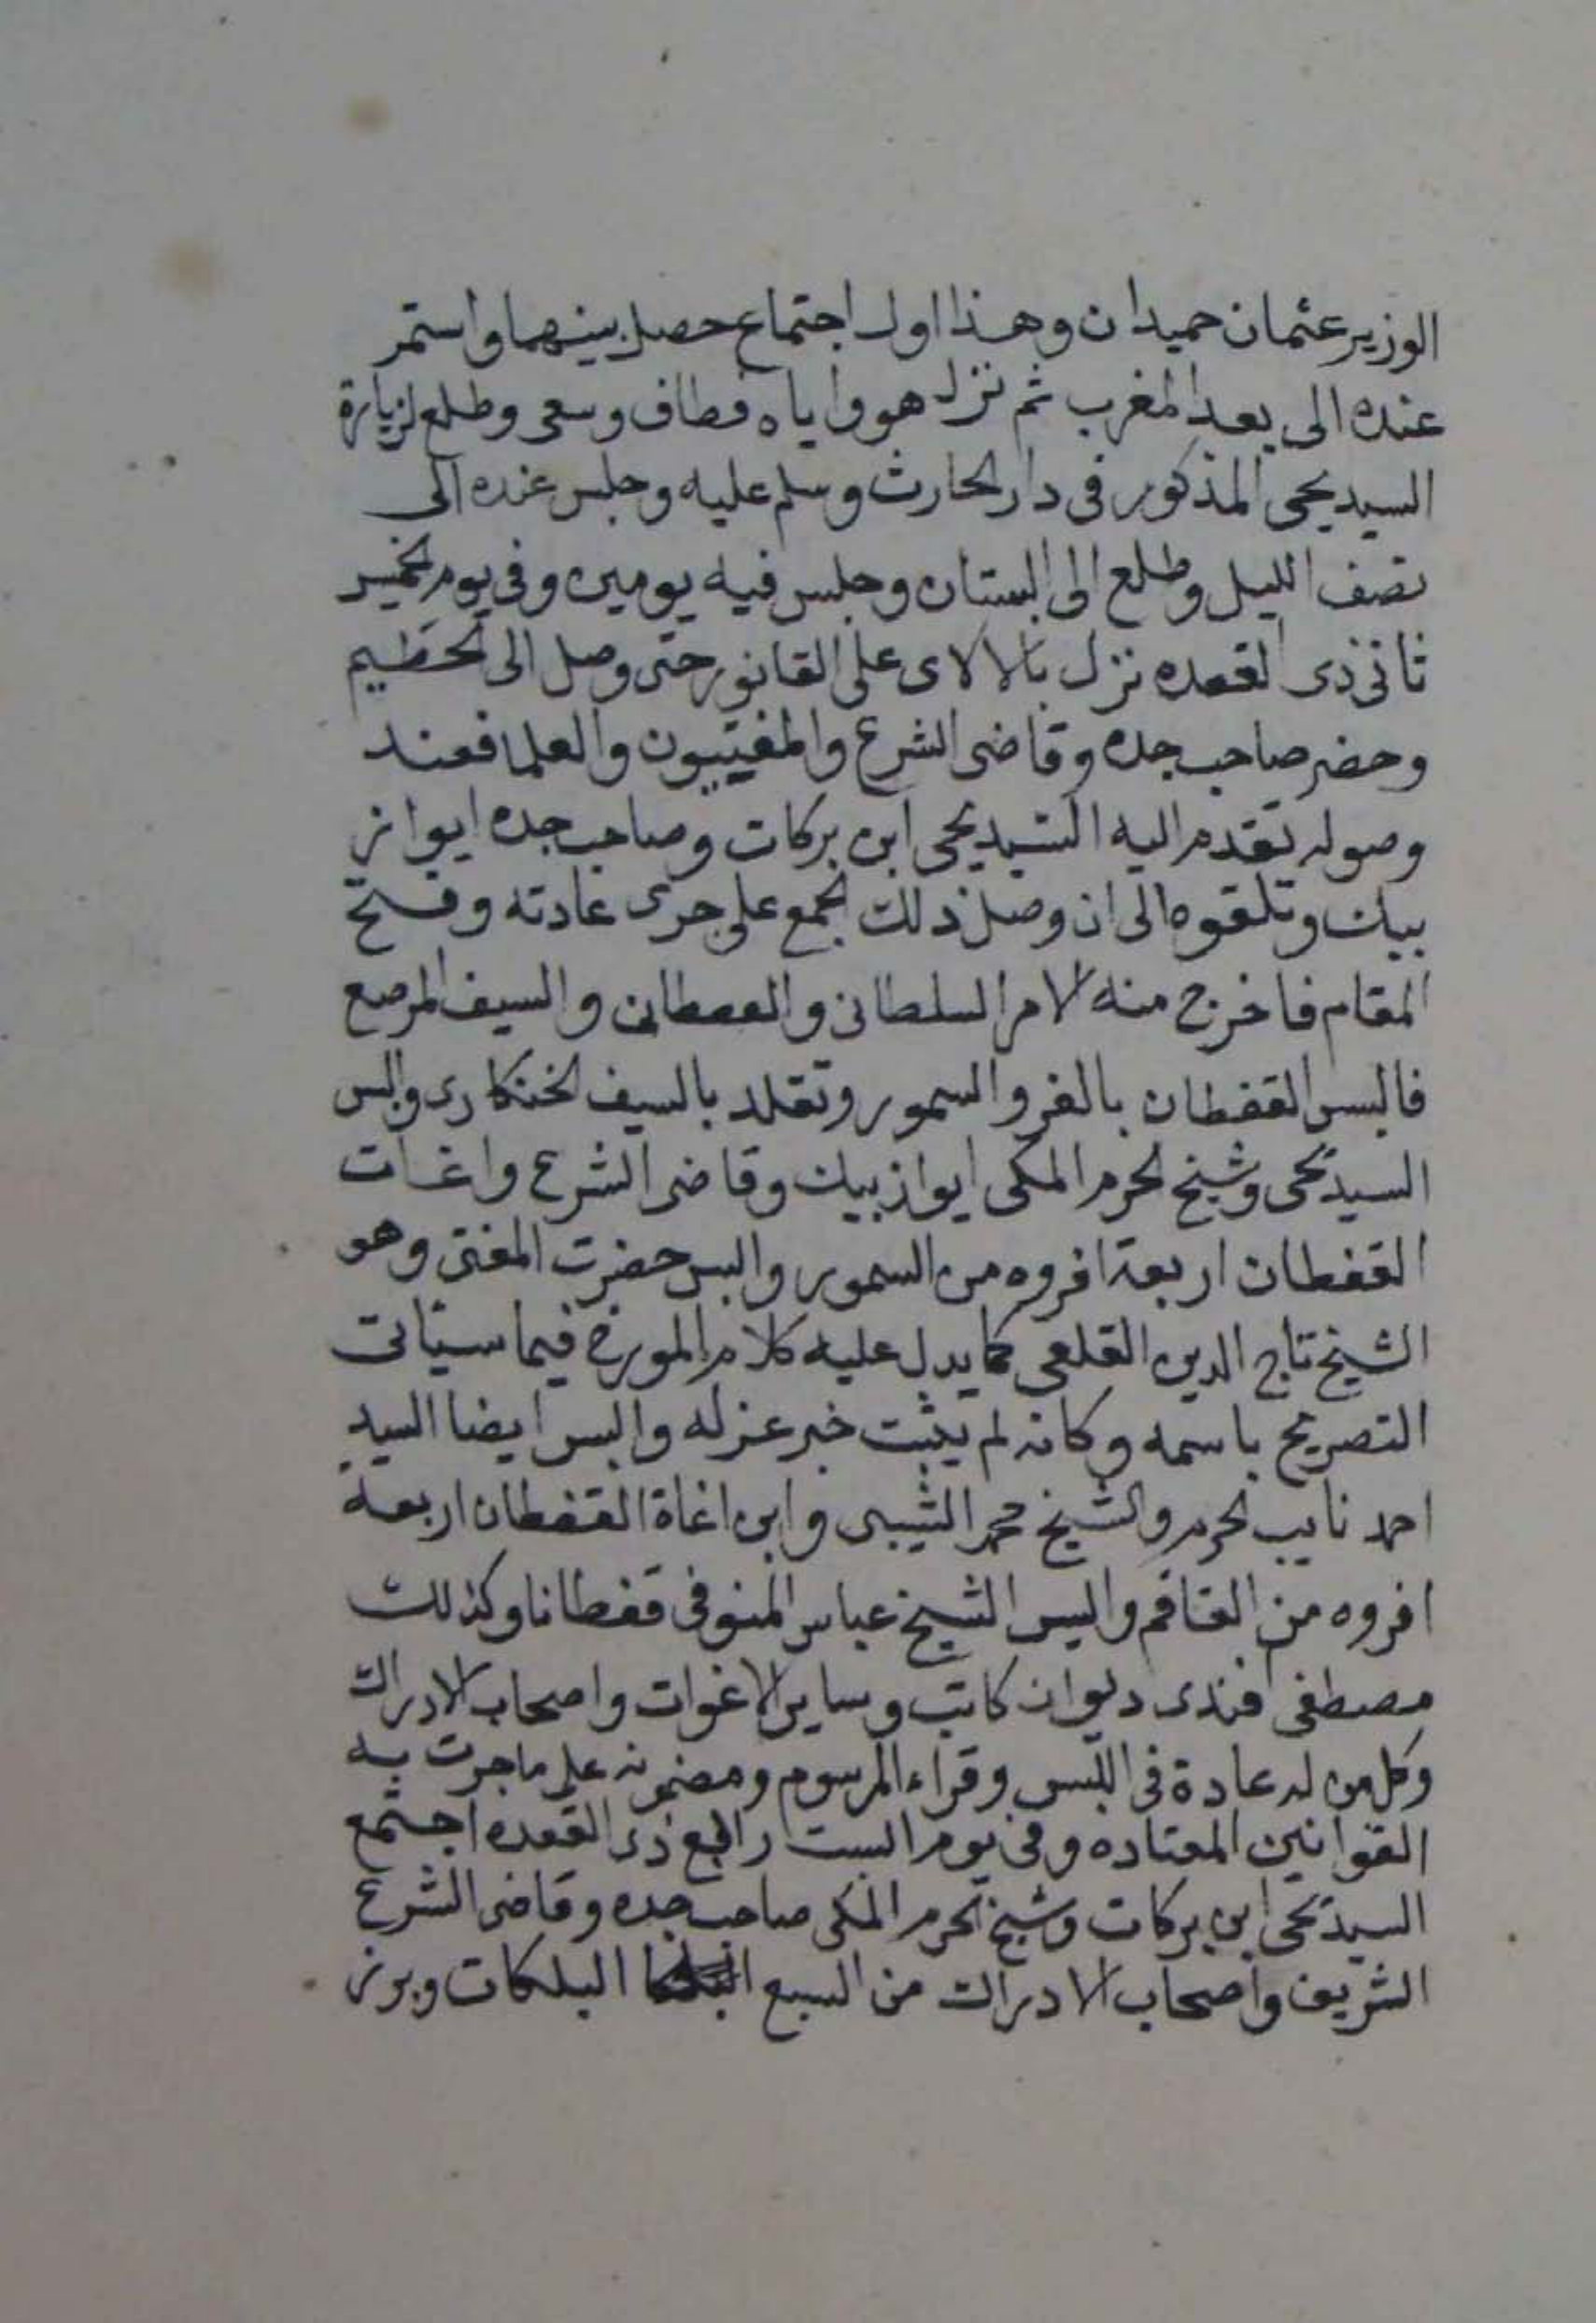 الوزير عثمان حميدان وهذا اول اجتماع حصل بينهما واستمر
عنده الى بعد المغرب ثم نزل هو واياه فطاف وسعى وطلع لزيارة
السيد يحيى المذكور في دار الحارث وسلم عليه وجلس عنده الى
نصف الليل وطلع الى البستان وجلس فيه يومين وفي يوم الخميس
ثاني ذى القعده نزل بالالاى على القانون حتى وصل الى الحطيم
وحضر صاحب جده وقاضى الشرع والمفتيون والعلما فعند
وصوله تقدم اليه السيد يحيى ابن بركات وصاحب جده ايواز
بيك وتلقوه الى ان وصل ذلك الجمع على جرى عادته وفتح
المقام فاخرج منه الامر السلطاني والقفطان والسيف المرصع
فالبس القفطان بالفرو السمور وتقلد بالسيف الخنكارى والبس
السيد يحيى وشيخ الحرم المكى ايواز بيك وقاضى الشرع واغات
القفطان اربعة افروه من السمور والبس حضرت المفتى وهو
الشيخ تاج الدين القلعى كما يدل عليه كلام المورخ فيما سيأتى
التصريح باسمه وكانه لم يثبت خبر عزله والبس ايضا السيد
احمد نايب الحرم والشيخ محمد الشيبى وابن اغاة القفطان اربعة
افروه من القاقم والبس الشيخ عباس المنوفى قفطانا وكذلك
مصطفى افندى ديوان كاتب وساير الاغوات واصحاب الادراك
وكل من له عادة في اللبس وقراء المرسوم ومضمونه على ماجرت به
القوانين المعتاده وفى يوم السبت رابع ذى القعده اجتمع
السيد يحيى ابن بركات وشيخ الحرم المكى صاحب جده وقاضى الشرع
الشريف واصحاب الادراك من السبع البلكات وبرز